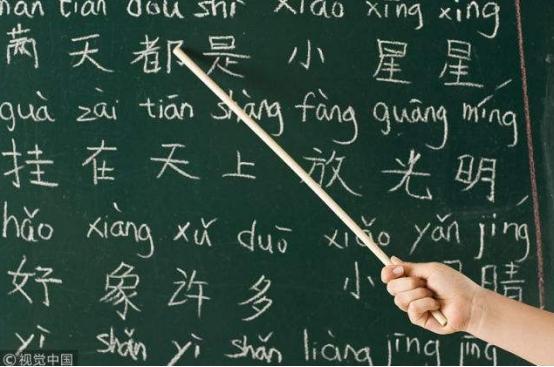 tiān dōu shì xiǎo xīng xing
天 都 是 小 星 星
guà zài tiān shàng fàng guāng míng
挂 在 天 上 放 光 明
hǎo xiàng xǔ duō xiǎo yǎn jīng
好 象 许 多 小
yì shǎn yì shǎn liàng jīng jīng
©视觉中国